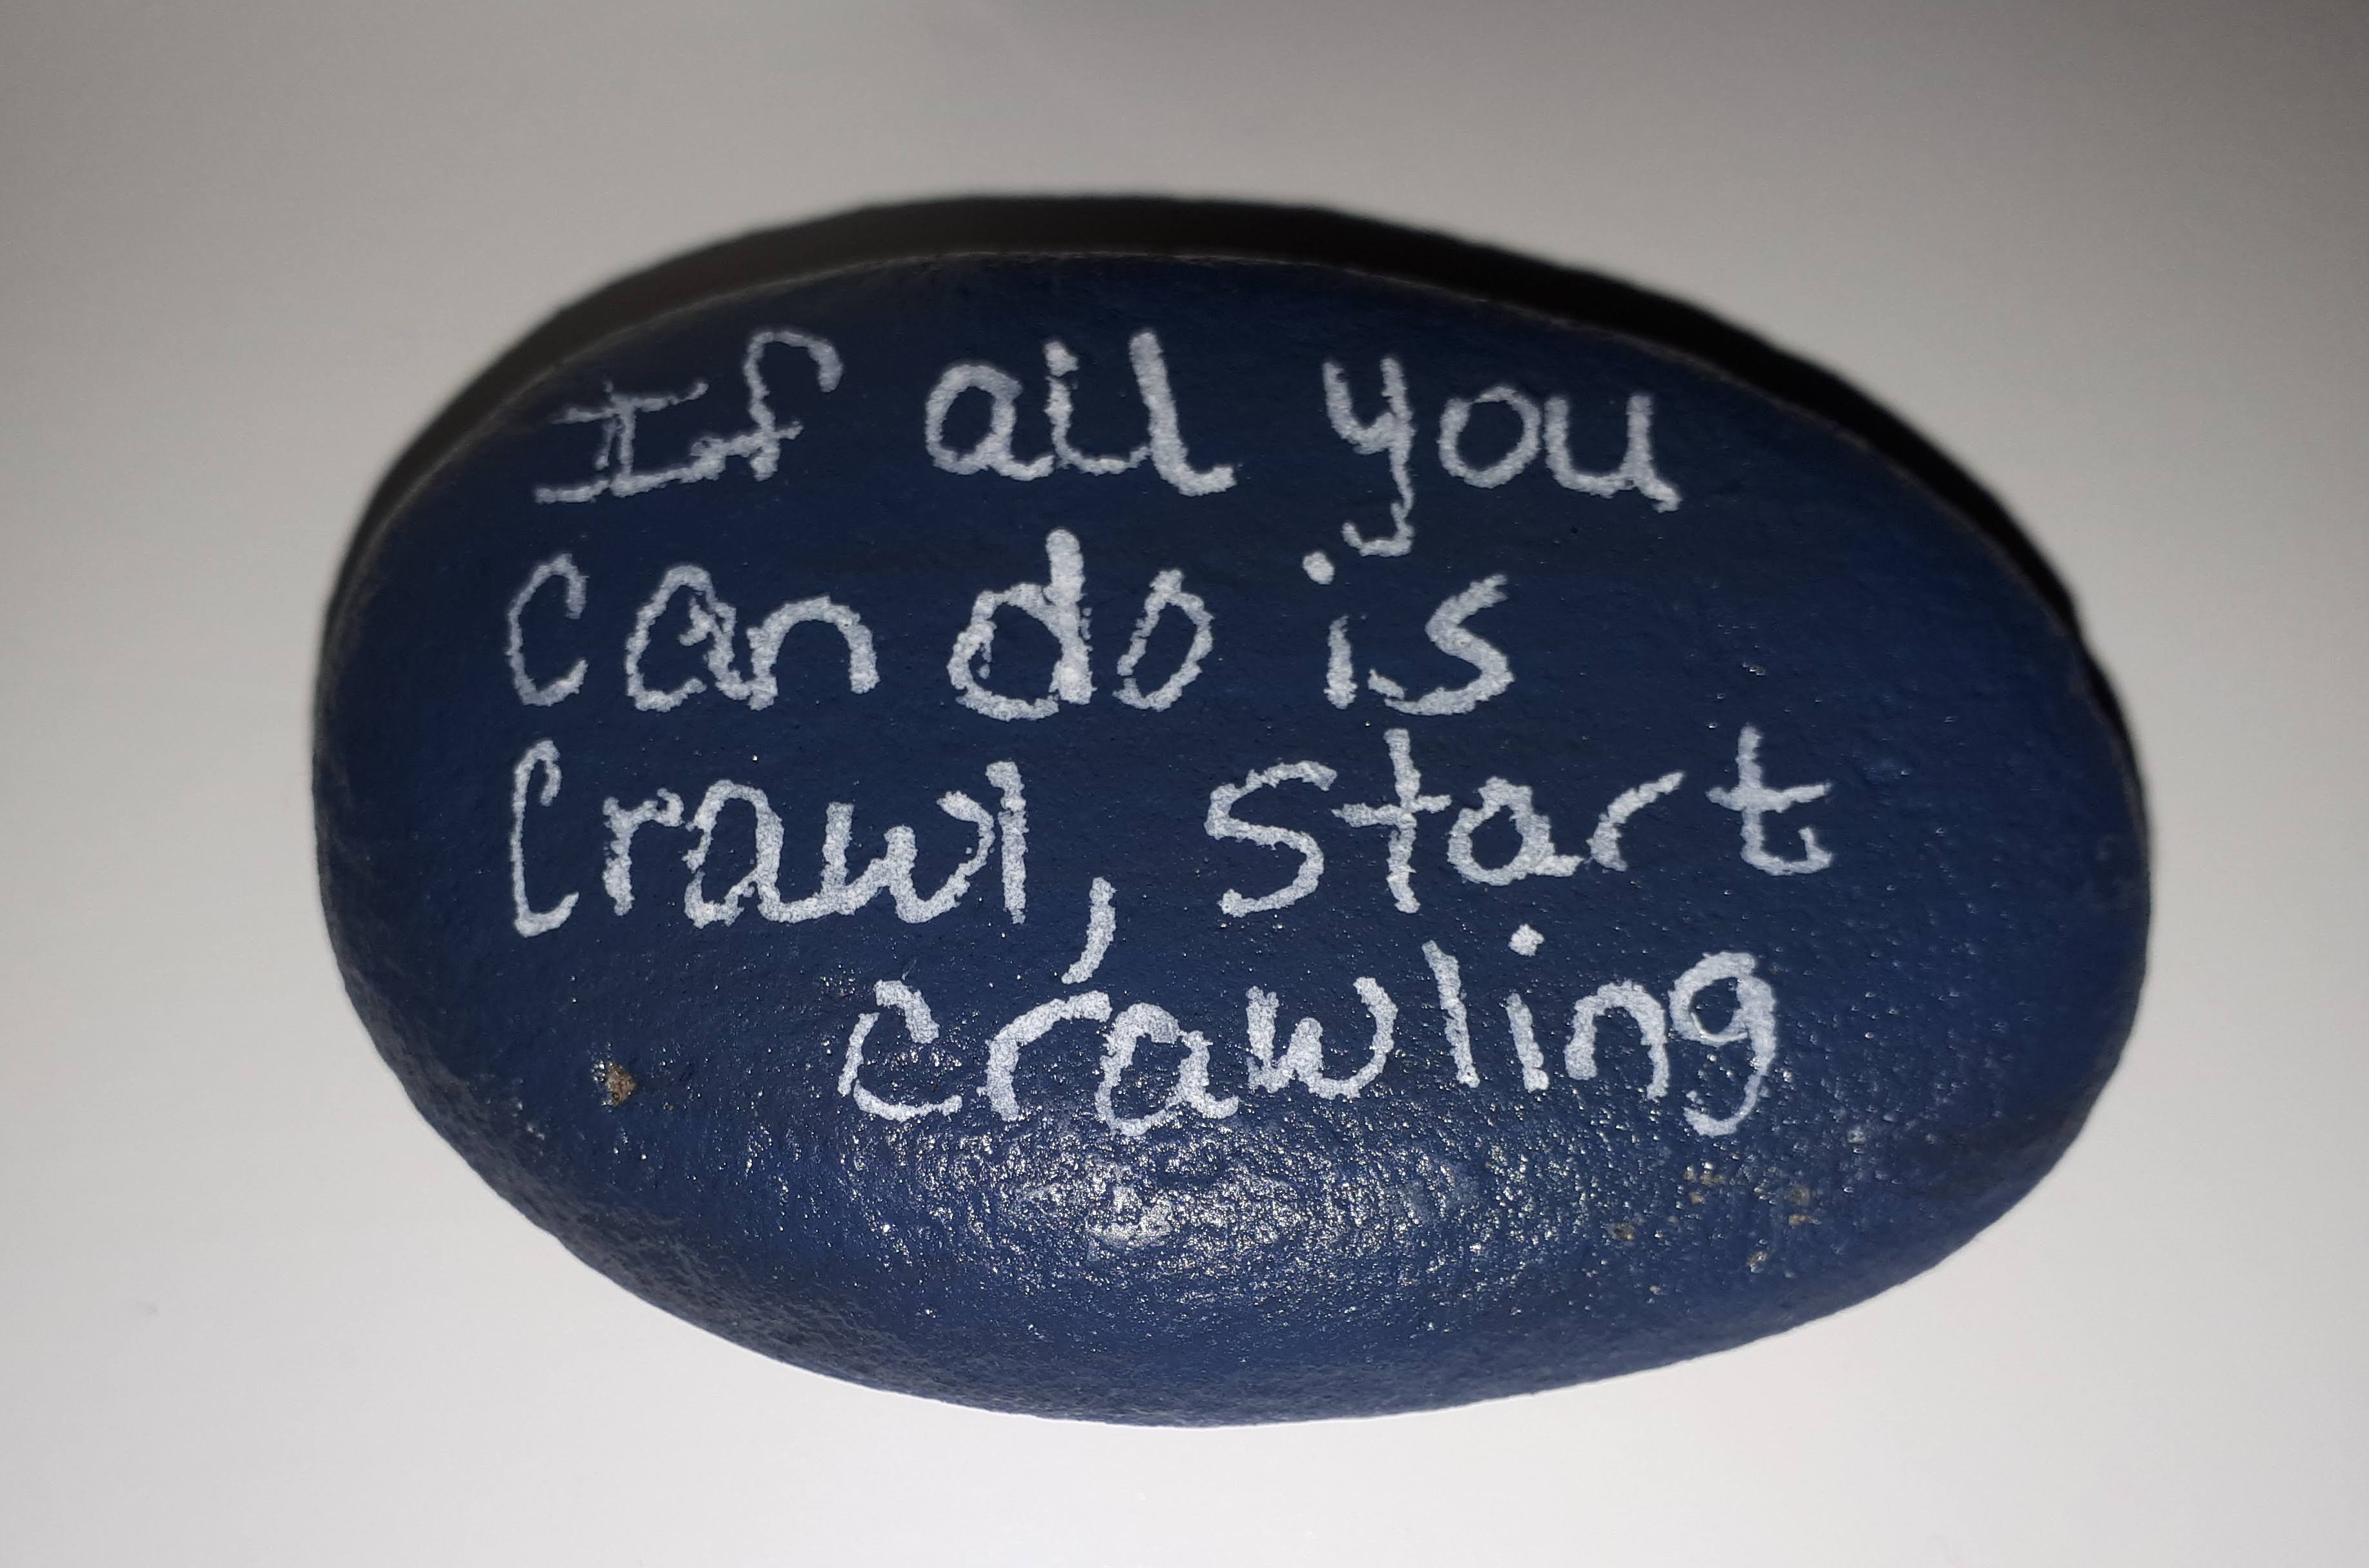 If all you
can do is
Crawl, start
crawling